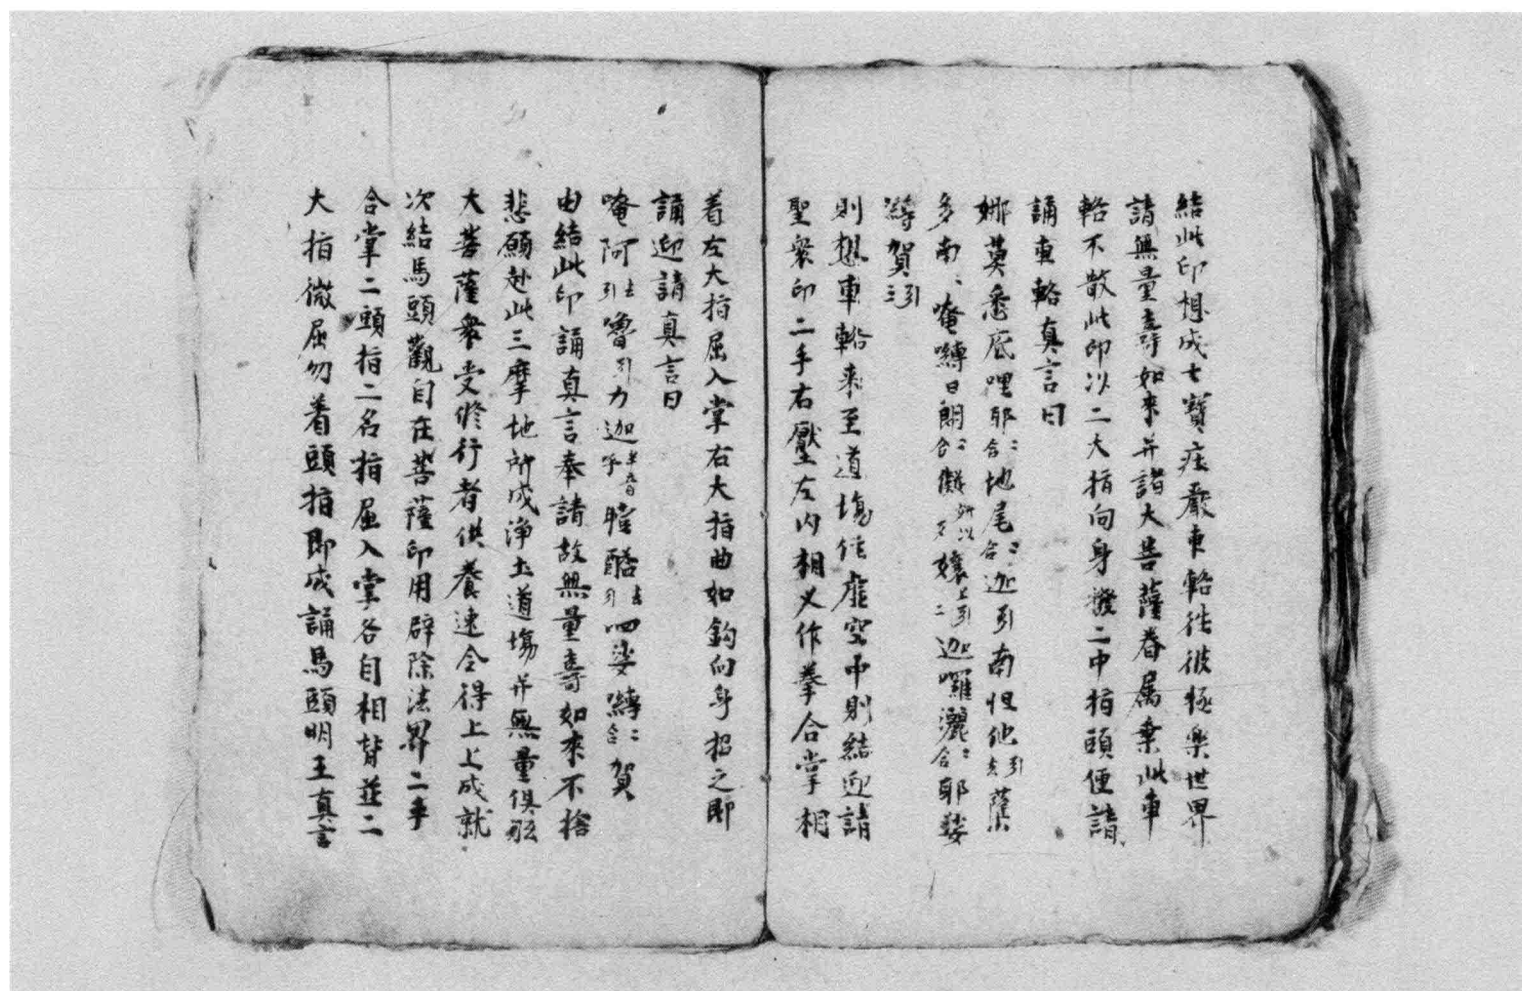 結此印想成七寳莊嚴車輅往彼極樂世界
請無量壽如來并諸大菩薩眷属乗此車
輅不散此印以二大指向身撥二中指頭便請
誦車輅真言曰
娜莫悉底哩耶二合地尾二合迦引南怛他引去蘗
多南、唵嚩日朗二合儗以妍反孃上引二迦囉灑二合耶娑
嚩賀引三
則想車輅来至道塲住虛空中則結迎請
聖衆印二手右壓左内相叉作拳合掌相
着左大指屈入掌右大指曲如鈎向身招之即
誦迎請真言曰
唵阿去引嚕引力迦半音呼曀醯去引呬娑嚩二合賀
由結此印誦真言奉請故無量壽如來不捨
悲願赴此三摩地所成淨土道塲并無量俱胝
大菩薩衆受修行者供養速令得上上成就
次結馬頭觀自在菩薩印用辟除法界二手
合掌二頭指二名指屈入掌各自相背並二
大指微屈勿着頭指即成誦馬頭明王真言